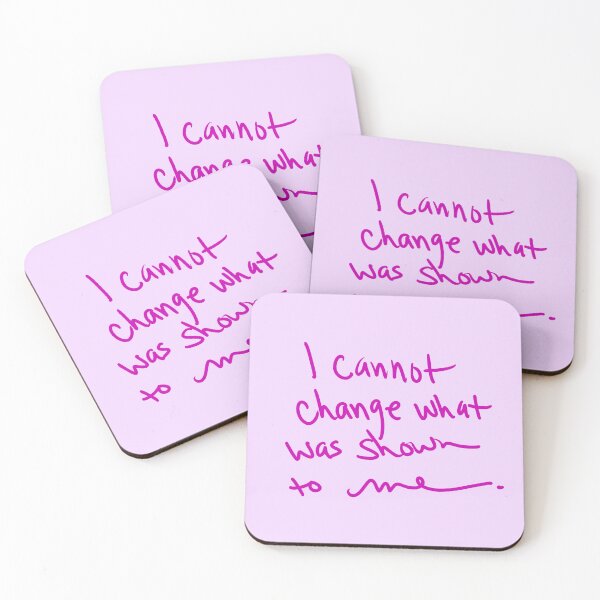 I cannot
change what
I cannot
change what
was shown
I cannot
change what
was shown
to me
I cannot
change what
was shown
to me.